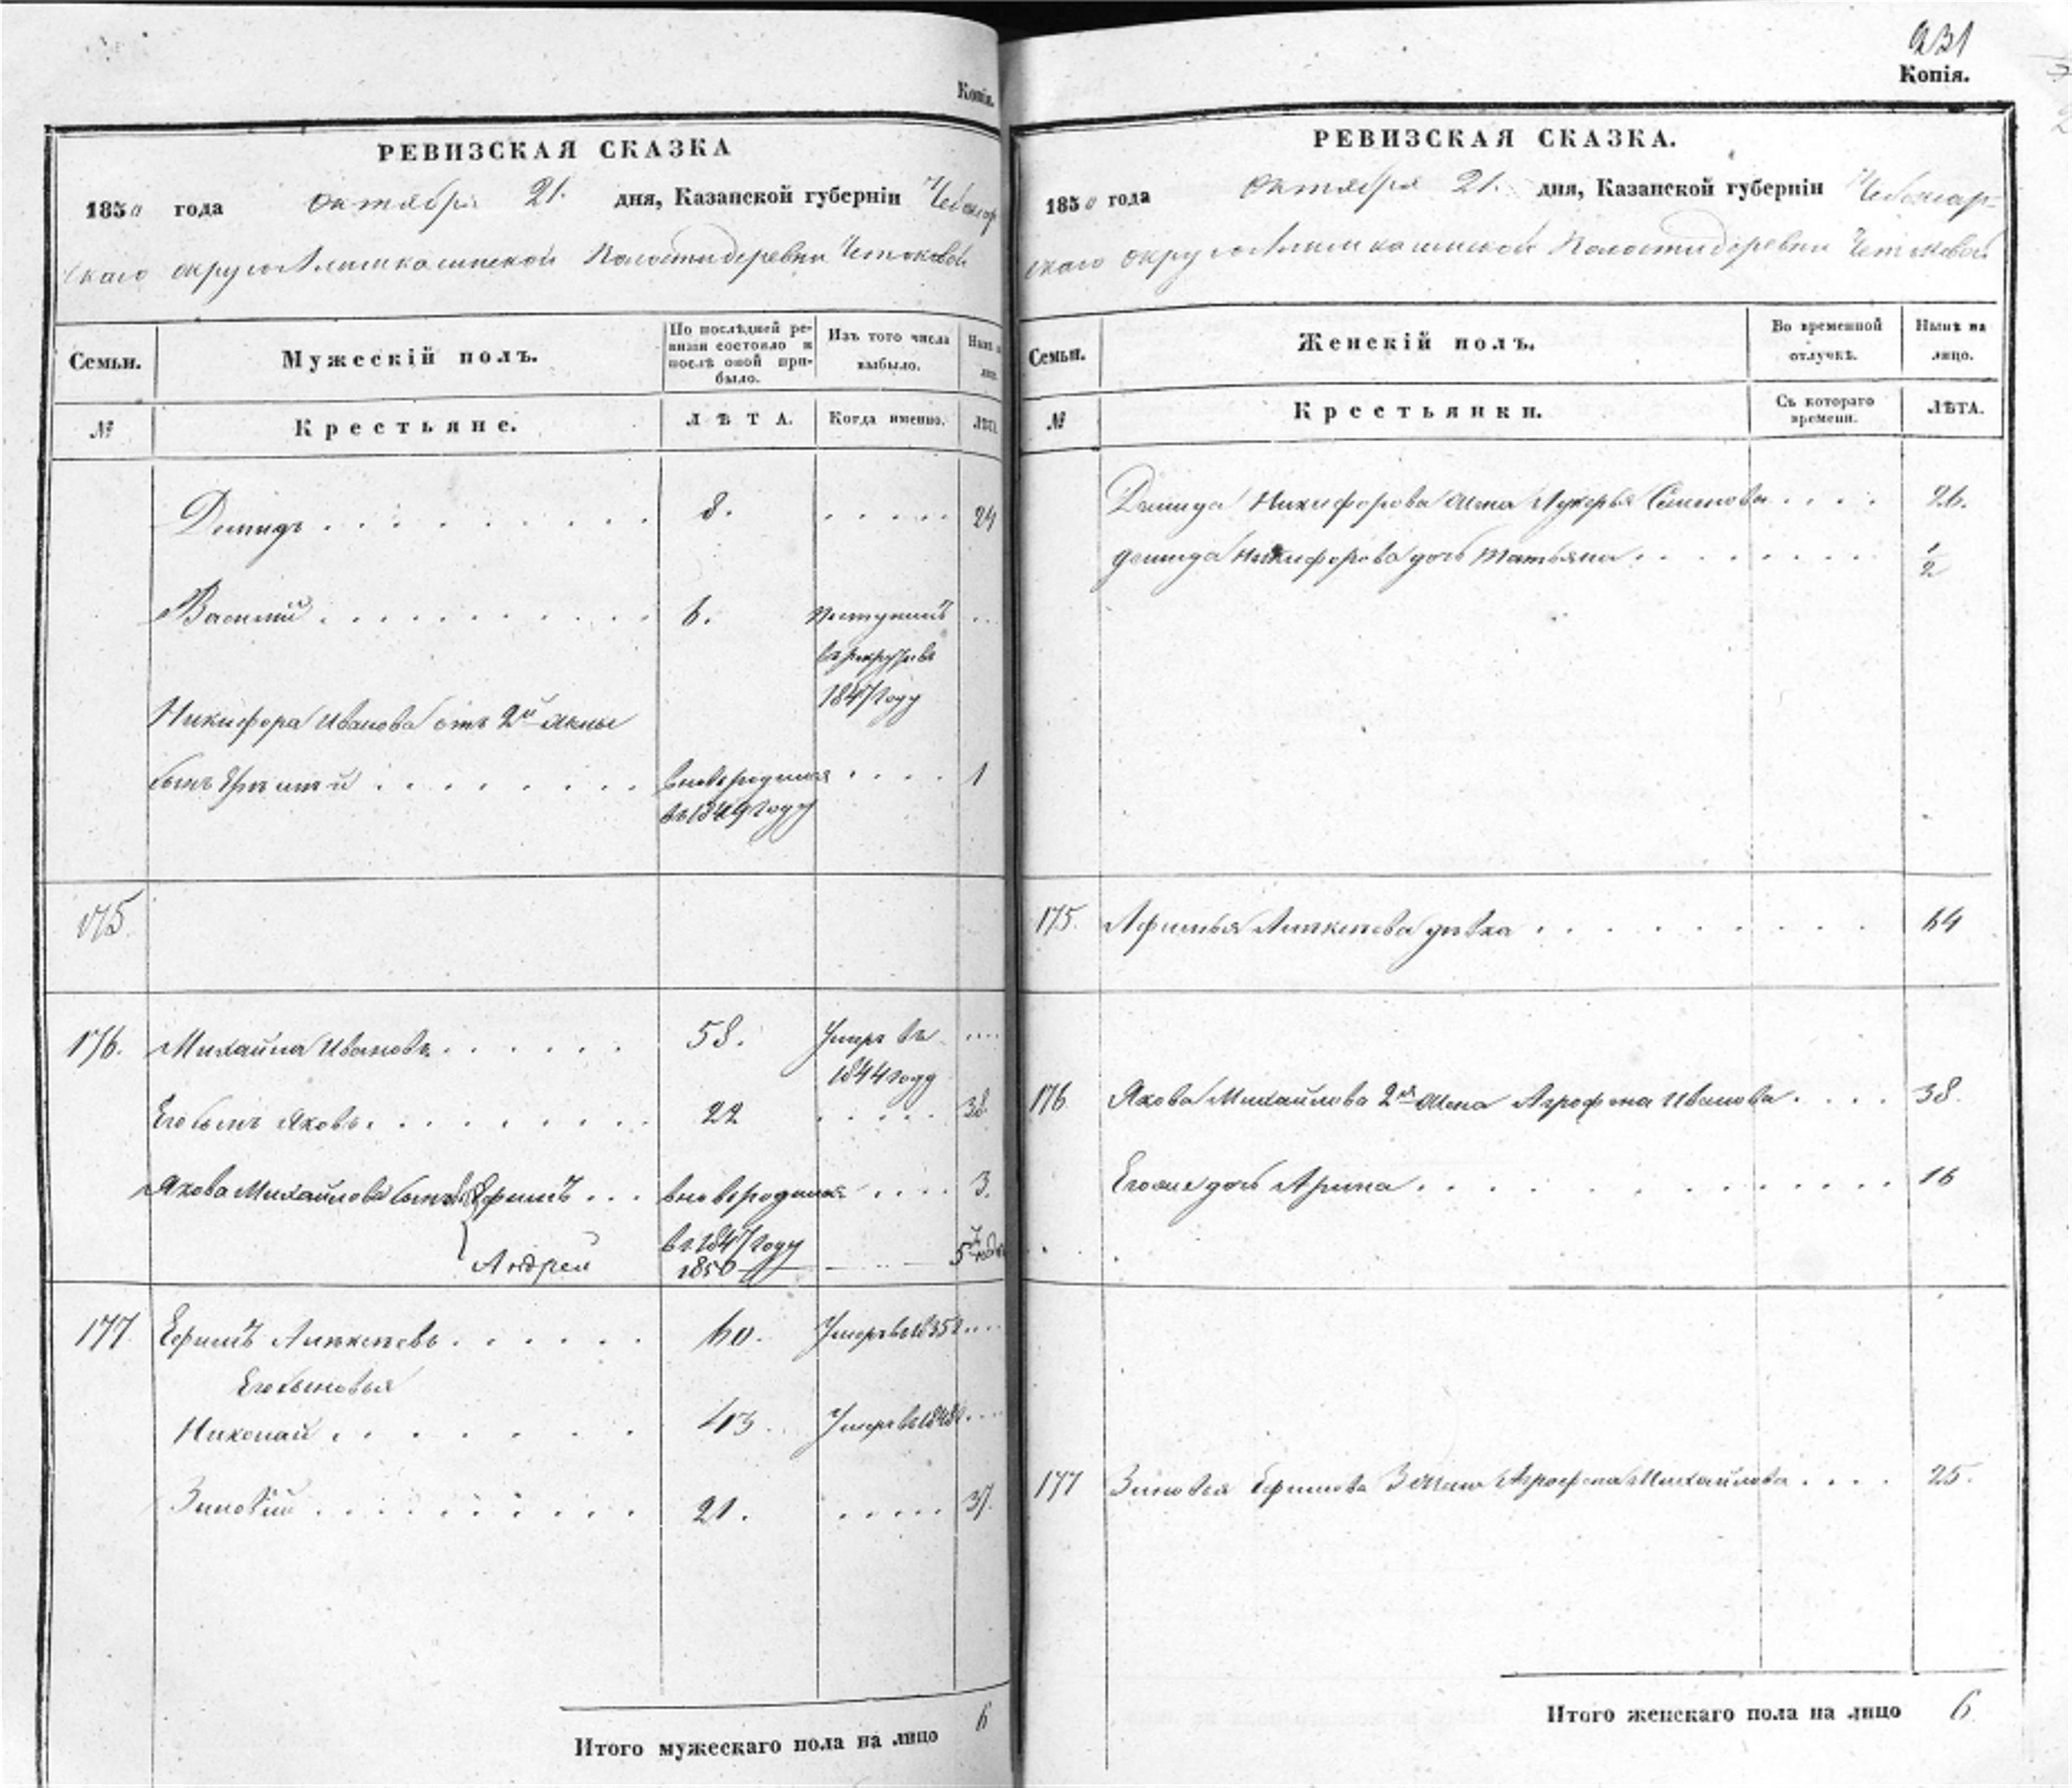 Копія.
РЕВИЗСКАЯ СКАЗКА
1850 года октября 21. дня, Казанской губерніи Чебоксар
скаго округа волости деревни
Семьи.
Мужескій полъ.
По послѣдней ре-
визіи состояло и
послѣ оной при-
было.
Изъ того числа
выбыло.
№
Крестьяне.
ЛѢТА.
Когда именно.
ЛѢТА.
Демидъ 8. 24
Василий 6. Поступилъ
в рекруты
1847 году
Никифора Иванова отъ 2й жены
сынъ вновь родился 1
въ 1849 году
175.
176. Михайла Ивановъ 58. Умеръ въ
1844 году
Его сынъ Яковъ 22 38.
Якова Михайлова сыновья Ефимъ вновь родился 3.
въ 1847 году
Андрей 1850
177. Ефимъ Алексѣевъ 60. Умеръ въ
Его сыновья
Николай 43. Умеръ въ
Зиновій 21. 37.
Итого мужескаго пола на лицо 6
231
Копія.
РЕВИЗСКАЯ СКАЗКА.
1850 года Октября 21. дня, Казанской губерніи Чебоксар-
скаго округа волости деревни
Семьи.
Женскій полъ.
Во временной
отлучкѣ.
Нынѣ на
лицо.
№
Крестьянки.
Съ котораго
времени.
ЛѢТА.
Демида Никифорова жена Лукерья Семенова 26.
Демида Никифорова дочь Татьяна 1/2
175. Афимья Алексѣева дѣвка 64
176 Якова Михайлова 2я жена Агрофена Иванова 38.
Его же дочь Арина 16
177 Зиновья Ефимова жена Агрофена Михайлова 25.
Итого женскаго пола на лицо 6